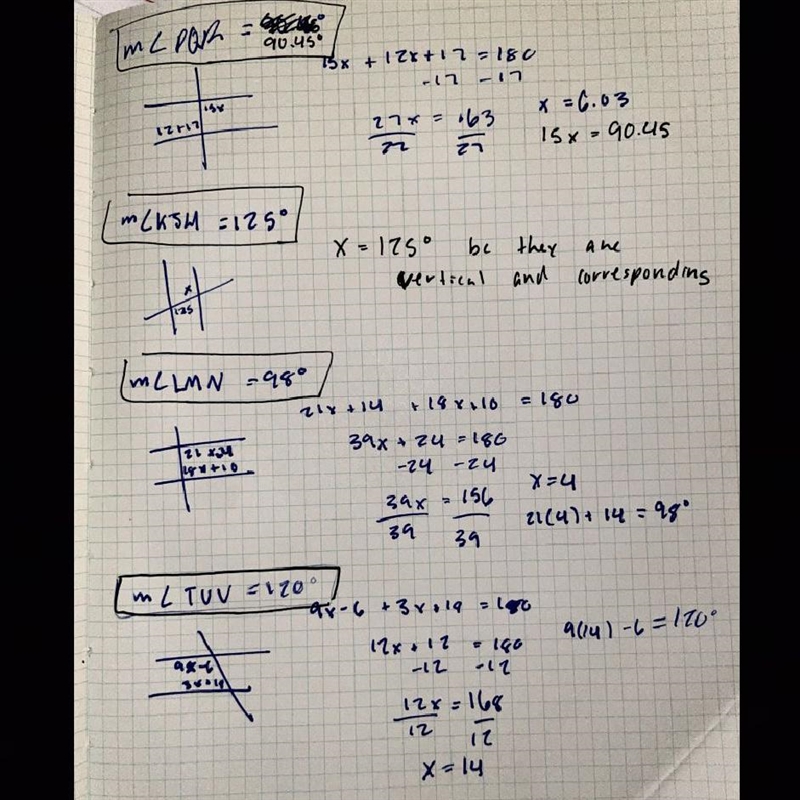 m∠PQR = 90.45°
15x + 12x+17 = 180
-17 -17
15x
12+17
27x = 163
27 27
x = 6.03
15x = 90.45
m∠KJM = 125°
x = 125° bc they are
vertical and corresponding
x
125
m∠LMN = 98°
21x+14 +18x+10 = 180
39x + 24 = 180
-24 -24
18x+10
39x = 156
39 39
x=4
21(4) + 14 = 98°
m∠TUV = 120°
9x-6 + 3x+19 = 180
9(14) -6 = 120°
12x + 12 = 180
-12 -12
9x-6
12x = 168
12 12
x = 14